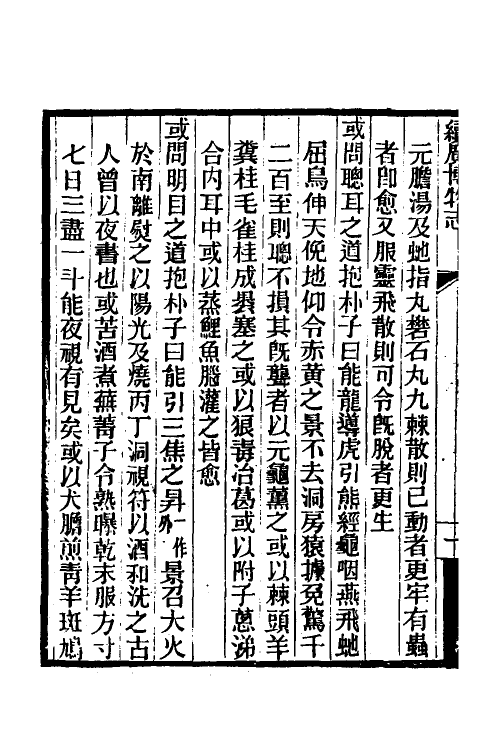 續廣博物志
元膽湯及虵指丸礬石丸九棘散則已動者更牢有蟲
者卽愈又服靈飛散則可令旣脫者更生
或問聰耳之道抱朴子曰能龍導虎引熊經龜咽燕飛虵
屈鳥伸天俛地仰令赤黃之景不去洞房猿據兔驚千
二百至則聰不損其旣聾者以元龜薰之或以棘頭羊
糞桂毛雀桂成裹塞之或以狼毒冶葛或以附子蔥涕
合內耳中或以蒸鯉魚腦灌之皆愈
或問明目之道抱朴子曰能引三焦之昇一作外景召大火
於南離熨之以陽光及燒丙丁洞視符以酒和洗之古
人曾以夜書也或苦酒煮蕪菁子令熟曝乾末服方寸
七日三盡一斗能夜視有見矣或以犬膽煎青羊斑鳩